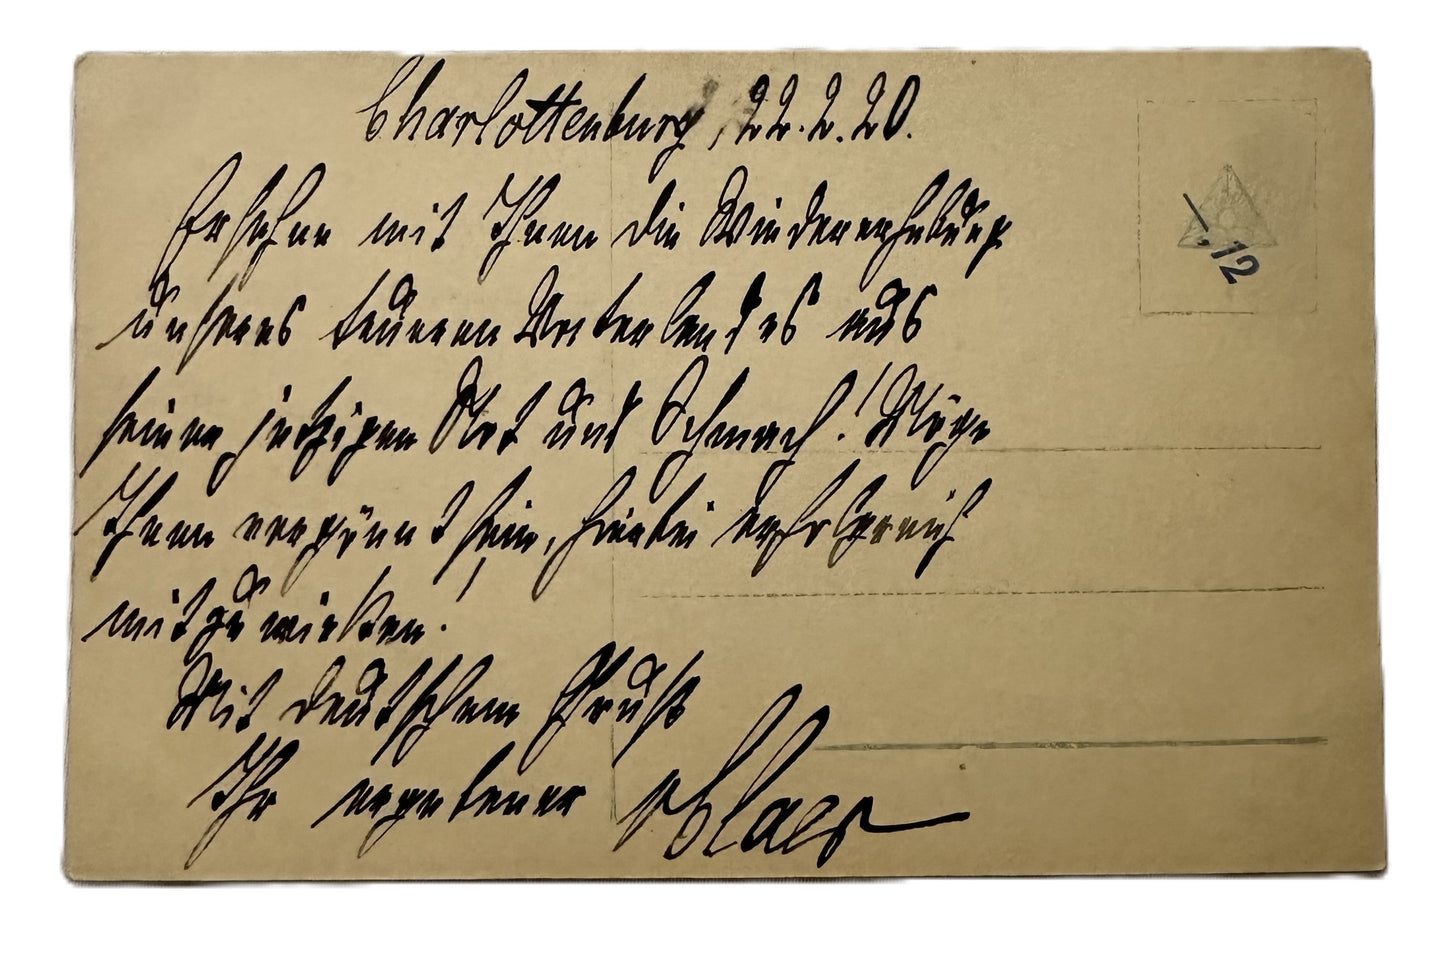 Charlottenburg, 22.2.20.
Ersehne mit Ihnen die Wiedererhebung
unseres teueren Vaterlandes aus
seiner jetzigen Not und Schmach! Möge
Ihnen vergönnt sein, hierbei erfolgreich
mitzuwirken.
Mit deutschem Gruß
Ihr ergebener
-,12